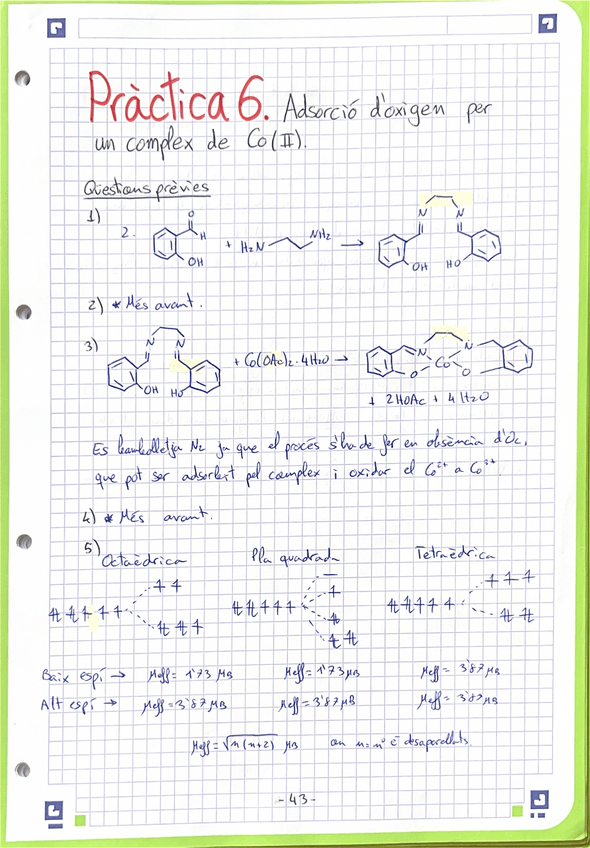 Pràctica 6. Adsorció d'oxigen per
un complex de Co(II).
Qüestions prèvies
1)
2. O H OH + H2N NH2 → N N OH HO
2) * Més avant.
3) N N OH HO + Co(OAc)2·4H2O → N N Co O O
+ 2HOAc + 4H2O
Es bambolletja N2 ja que el procés s'ha de fer en absència d'O2,
que pot ser adsorbit pel complex i oxidar el Co2+ a Co3+.
4) * Més avant.
5) Octaèdrica Pla quadrada Tetraèdrica
Baix espí → μeff = 1'73 μB μeff = 1'73 μB μeff = 3'87 μB
Alt espí → μeff = 3'87 μB μeff = 3'87 μB μeff = 3'87 μB
μeff = √n(n+2) μB on n = nº e- desaparellats
- 43 -